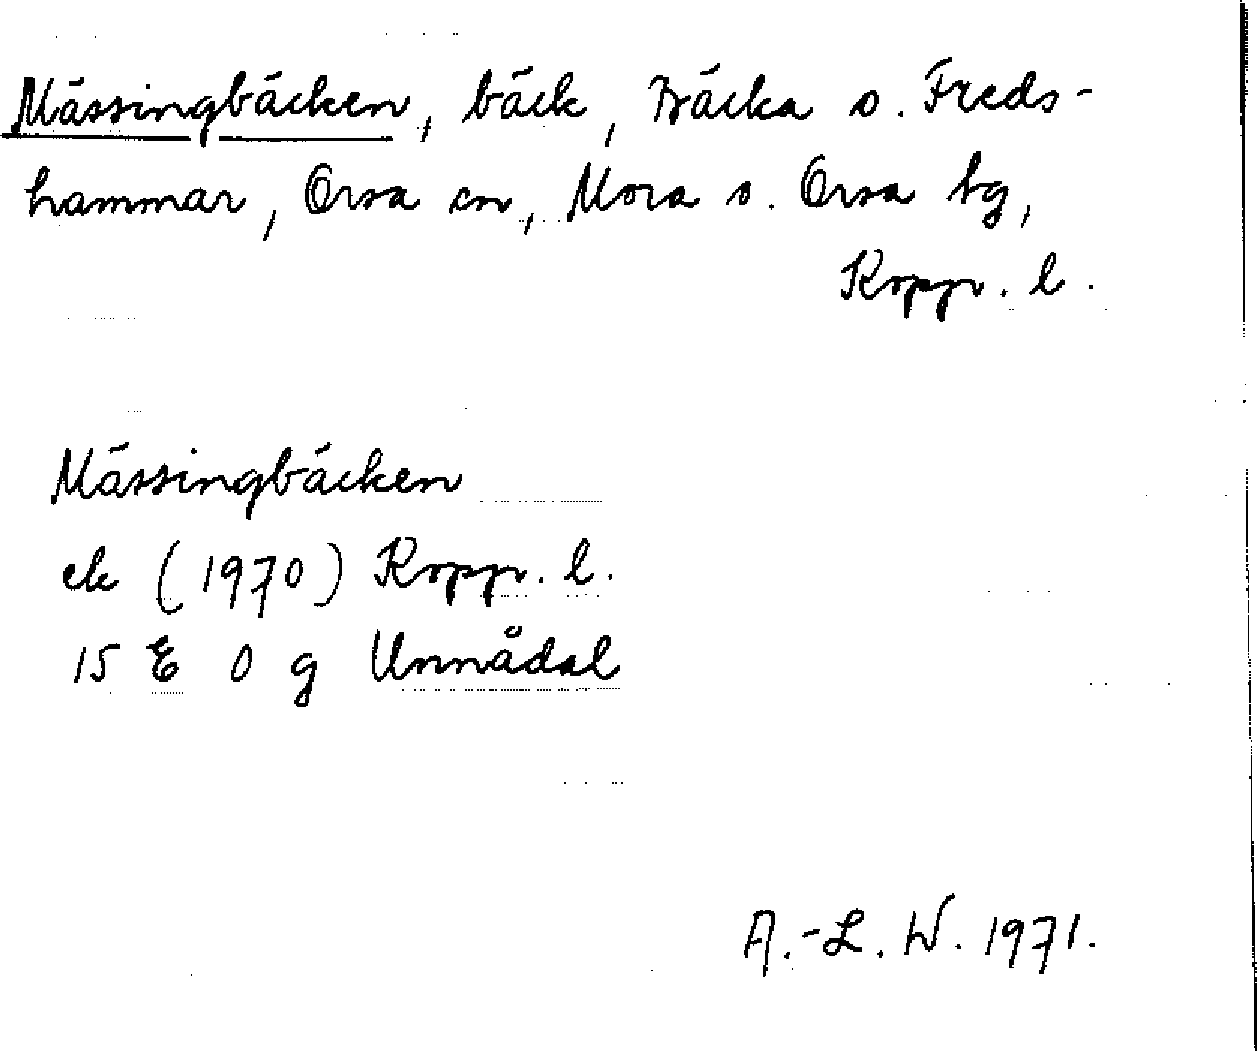 Mässingbäcken, bäck, Bäcka o. Freds-
hammar, Orsa sn, Mora o. Orsa tg,
Kopp. l.
Mässingbäcken
ek (1970) Kopp. l.
15 E 0 g Unnådal
A.-L. W. 1971.